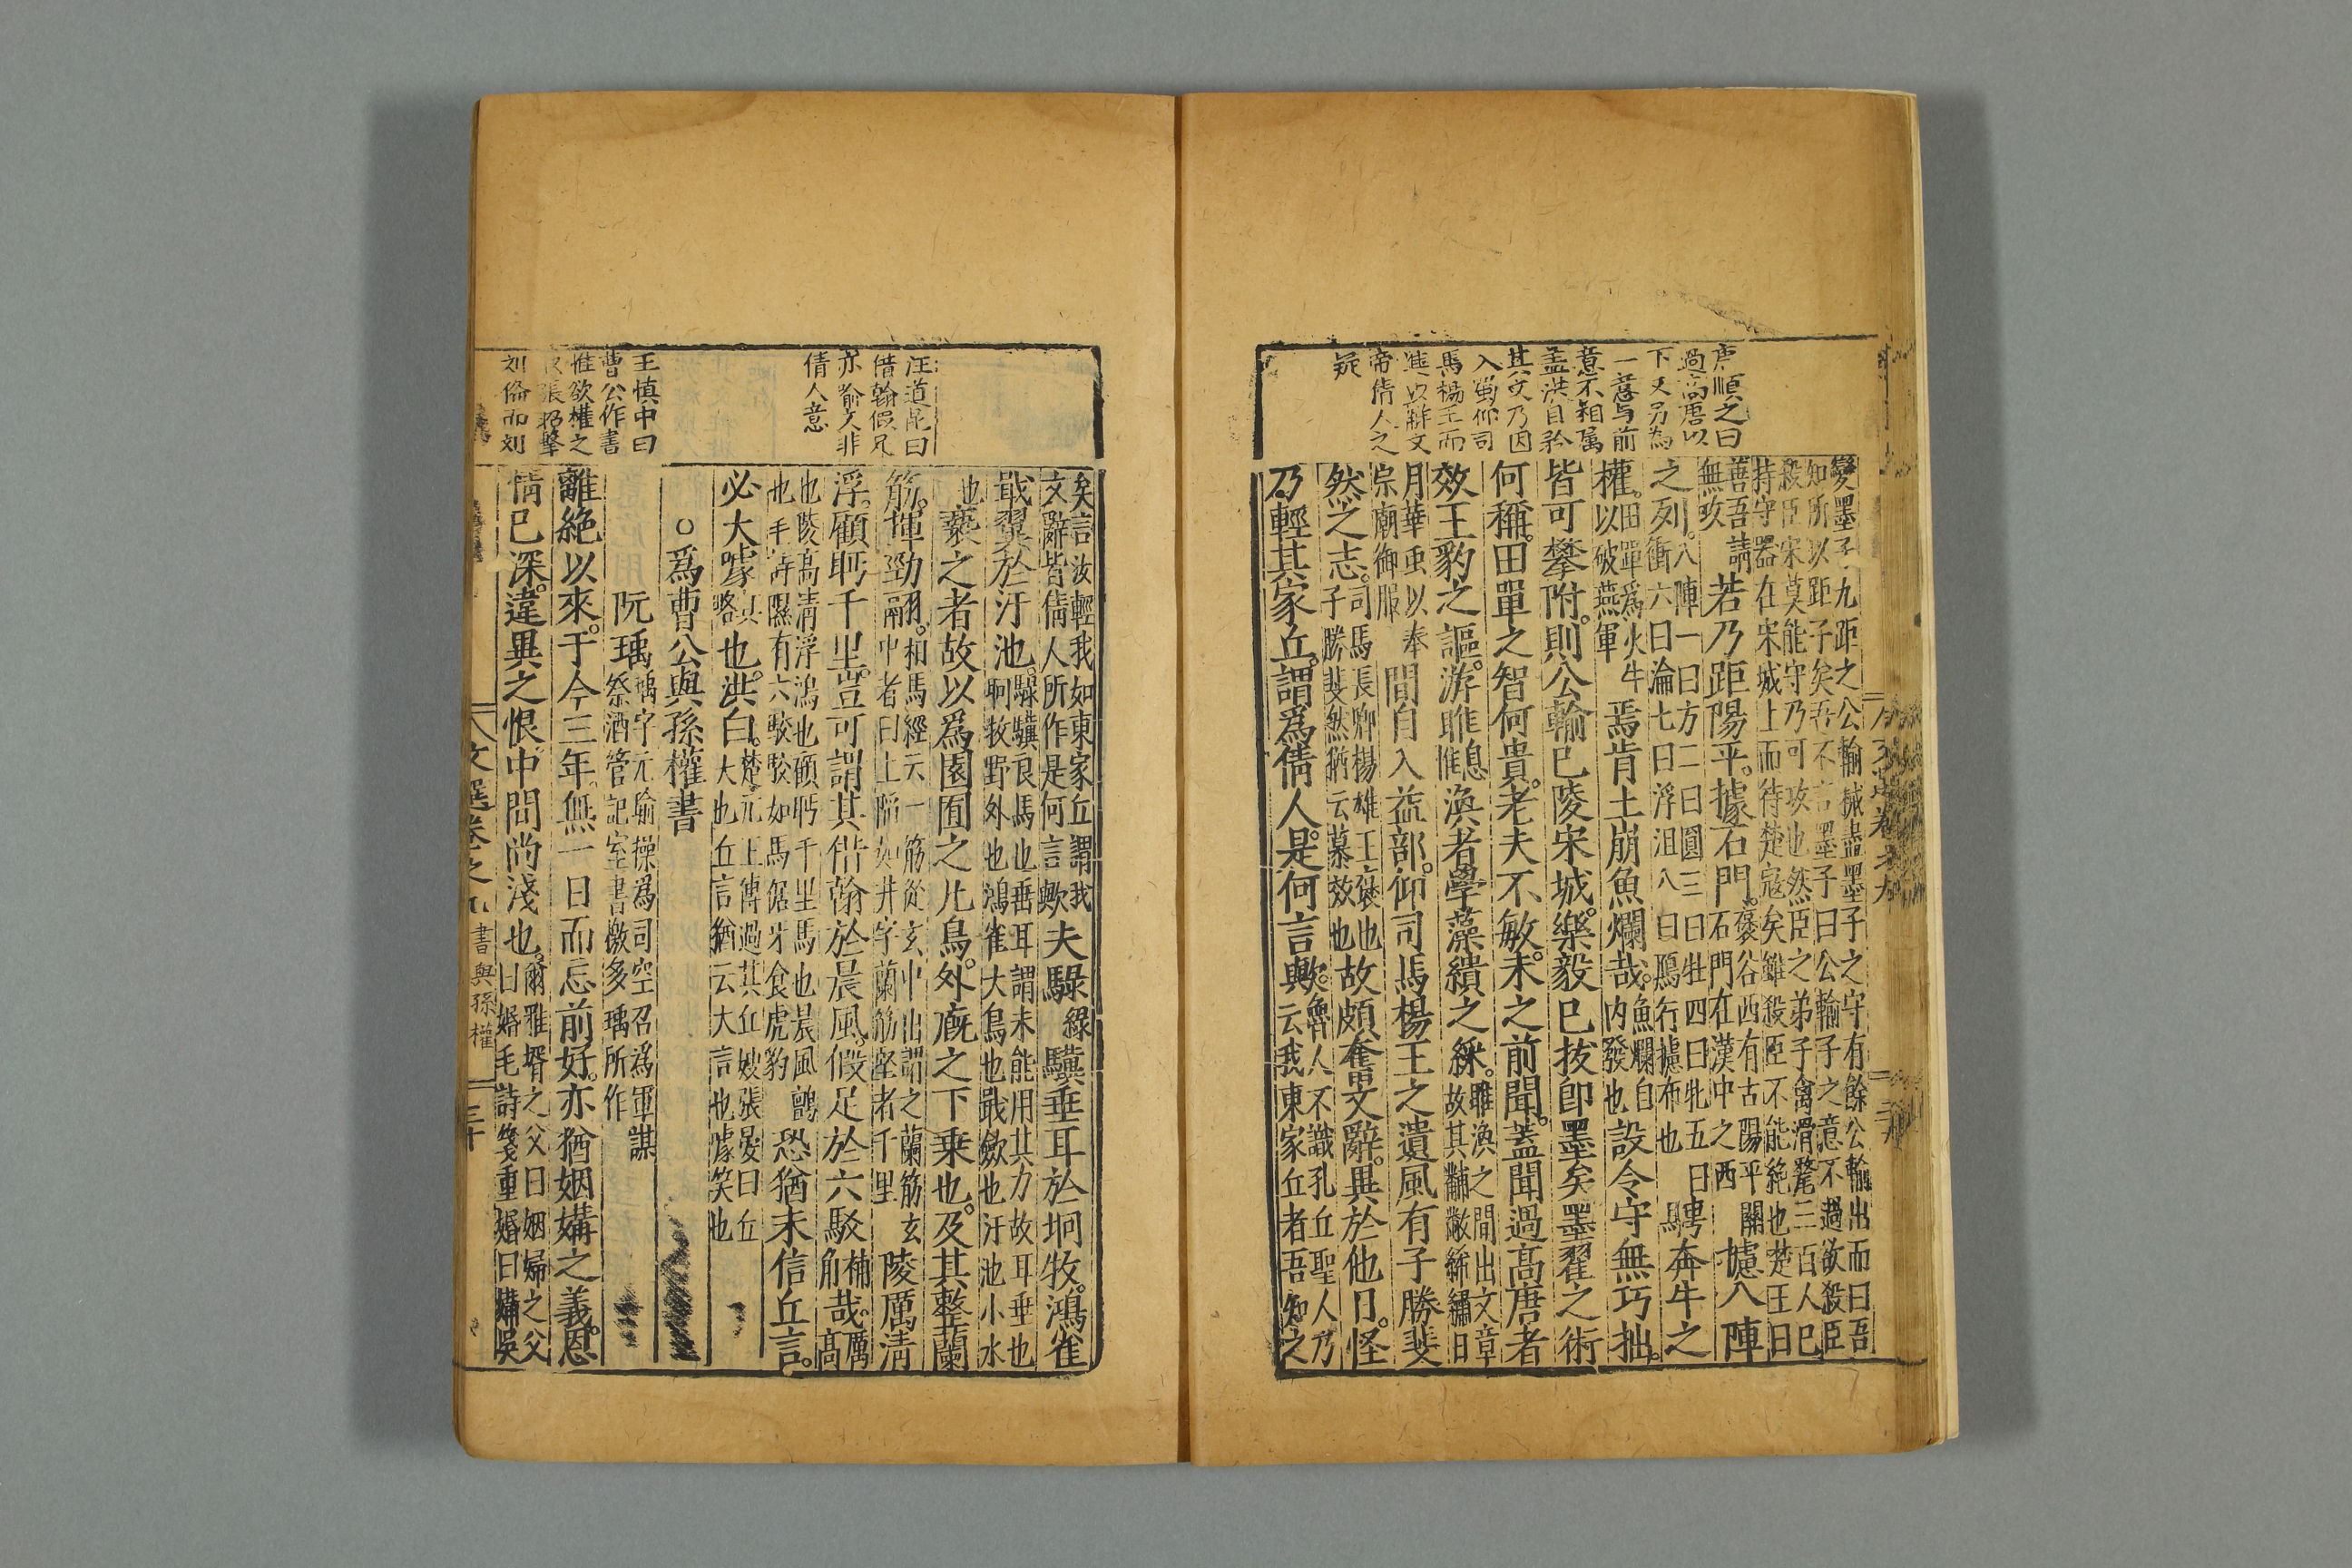 唐順之曰
過高唐以
下又另為
一意与前
意不相属
盖洪自矜
其文乃因
入蜀仰司
馬楊王而
進以辭文
帝倩人之
疑
變墨子九距之公輸械盡墨子之守有餘公輸出而曰吾
知所以距子矣吾不言墨子曰公輸子之意不過欲殺臣
殺臣宋莫能守乃可攻也然臣之弟子禽滑釐三百人已
持守器在宋城上而待楚寇矣雖殺臣不能絶也楚王曰
善吾請
無攻
若乃距陽平。據石門。
褒谷西有古陽平關
石門在漢中之西
摅八陣
之列。
八陣一曰方二曰圓三曰牡四曰牝五曰
衝六曰淪七曰浮沮八曰鴈行摅布也
騁奔牛之
權。
田單爲火牛
以破燕軍
焉肯土崩魚爛哉。
魚爛自
内發也
設令守無巧拙。
皆可攀附。則公輸已陵宋城。樂毅已拔即墨矣墨翟之術
何稱。田單之智何貴。老夫不敏。未之前聞。蓋聞過高唐者
效王豹之謳。游睢
息
惟
渙者學藻繢之綵。
睢渙之間出文章
故其黼黻絺繡日
月華虫以奉
宗廟御服
間自入益部。仰司馬楊王之遺風有子勝斐
然之志。
司馬長卿楊雄王褒也
子勝斐然猶云慕效也
故頗奮文辭。異於他日。怪
乃輕其家丘。謂爲倩人。是何言歟。
魯人不識孔丘聖人乃
云我東家丘者吾知之
矣言汝輕我如東家丘謂我
文辭皆倩人所作是何言歟
夫騄
綠
驥垂耳於坰牧。鴻雀
戢翼於汙池。
騄驥良馬也垂耳謂未能用其力故耳垂也
坰牧野外也鴻雀大鳥也戢斂也汙池小水
也
褻之者故以爲園囿之凡鳥。外廐之下乗也。及其整蘭
筋。揮勁翮。
相馬經云一筋從玄中出謂之蘭筋玄
中者目上陷如井字蘭筋堅者千里
陵厲清
浮。顧眄千里。豈可謂其借翰於晨風。假足於六駮
補
角
哉。
厲
高
也陵高清浮鴻也顧眄千里馬也晨風鸇
也毛詩隰有六駮駮如馬倨牙食虎豹
恐猶未信丘言。
必大噱
其
略
也。洪白。
楚元王傳過其丘嫂張晏曰丘
大也丘言猶云大言也噱笑也
○爲曹公與孫權書
阮瑀
瑀字元瑜操爲司空召爲軍謀
祭酒管記室書檄多瑀所作
離絶以來。于今三年。無一日而忘前好。亦猶姻媾之義。恩
情已深。違異之恨。中間尚淺也。
爾雅壻之父曰姻婦之父
曰婚毛詩箋重婚曰媾吳
汪道昆曰
借翰假足
亦喻文非
倩人意
王慎中曰
曹公作書
惟欲權之
取張昭擊
刘俻而刘
文選卷之九 書 與孫權 三十